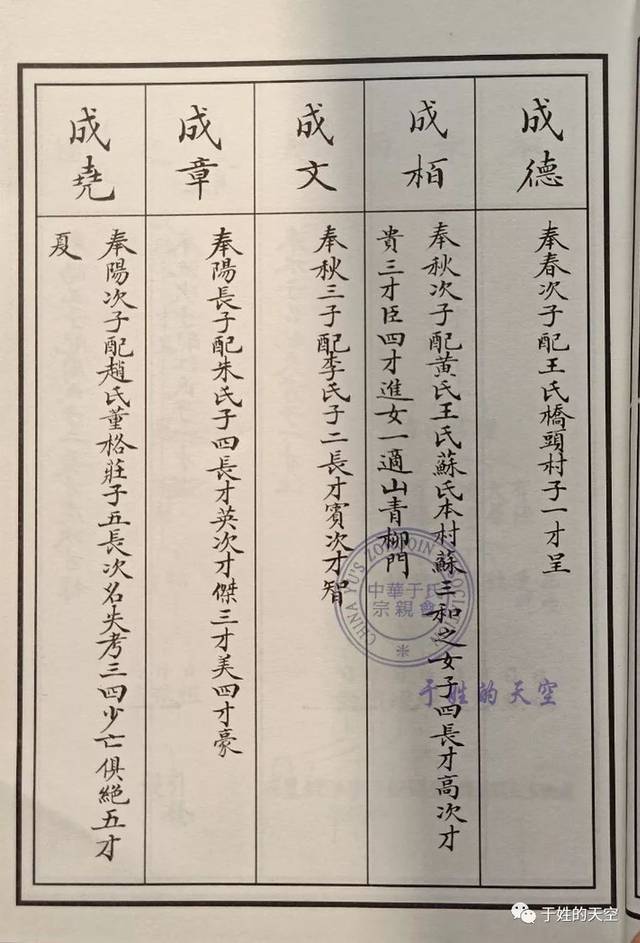 成德
奉春次子配王氏橋頭村子一才呈
成栢
奉秋次子配黃氏王氏蘇氏本村蘇三和之女子四長才高次才
貴三才臣四才進女一適山青柳門
成文
奉秋三子配李氏子二長才賓次才智
成章
奉陽長子配朱氏子四長才英次才傑三才美四才豪
成堯
奉陽次子配趙氏董格莊子五長次名失考三四少亡俱絕五才
夏
CHINA YU'S ZONGQIN SOCIETY
中華于氏
宗親會
于姓的天空
于姓的天空